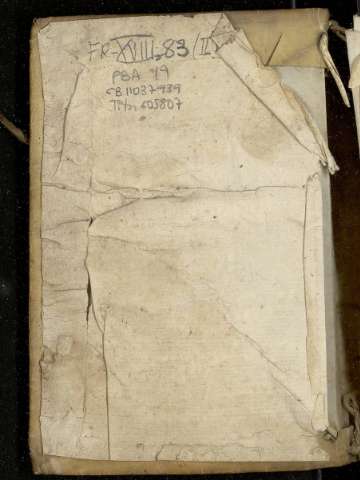 FR-XVIII-83 (II)
PBA 49
CB.11037939
Tit. 605807